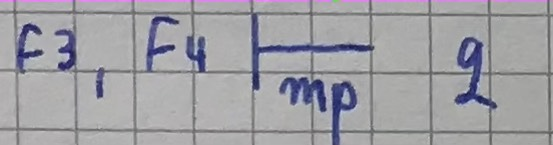 F3, F4 ⊢mp q